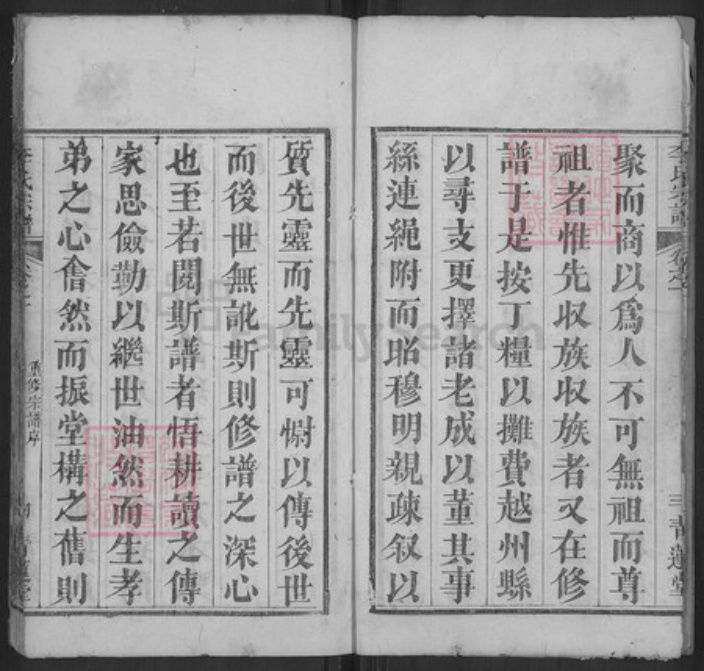 聚而商以爲人不可無祖而尊
祖者惟先収族収族者又在修
譜于是按丁糧以攤費越州縣
以尋支更擇諸老成以董其事
絲連繩附而昭穆明親疎叙以
質先靈而先靈可慰以傳後世
而後世無訛斯則修譜之深心
也至若閱斯譜者悟耕讀之傳
家思儉勤以繼世油然而生孝
弟之心翕然而振堂構之舊則
李氏宗譜
青蓮堂
李氏宗譜
重修宗譜序
FamilySearch